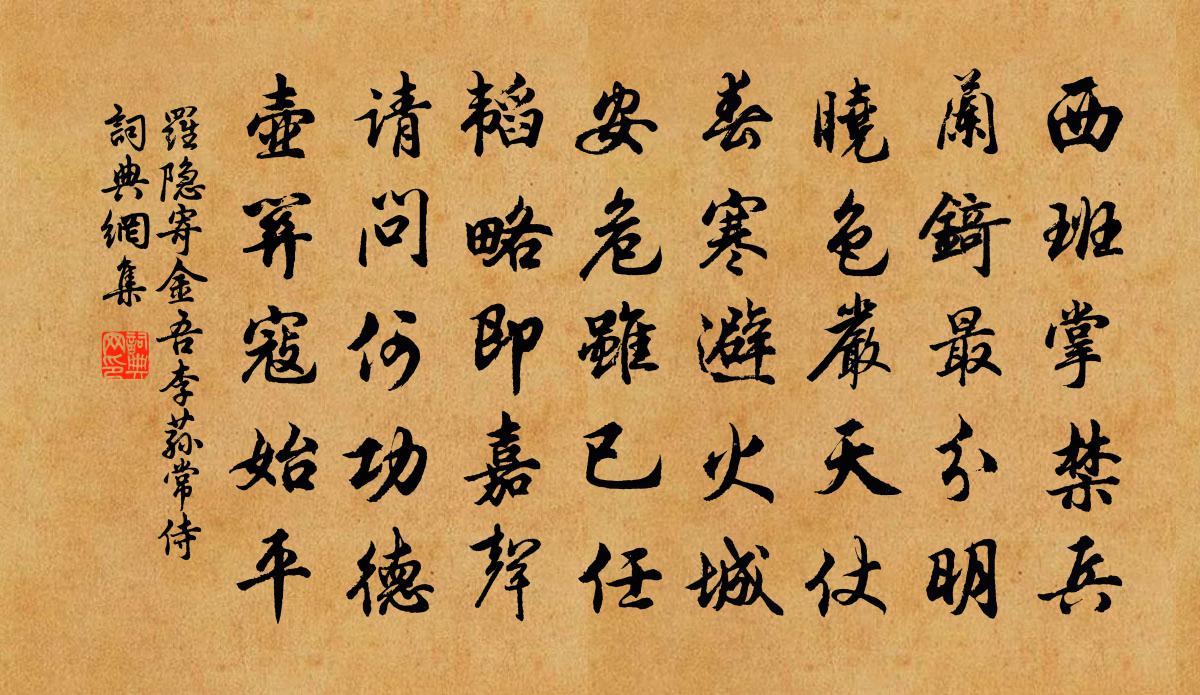 西班掌禁兵
蘭錡最分明
曉色嚴天仗
春寒避火城
安危雖已任
韜略即嘉聲
请問何功德
壺關寇始平
羅隐寄金吾李蓀常侍
詞典網集
詞典
网印